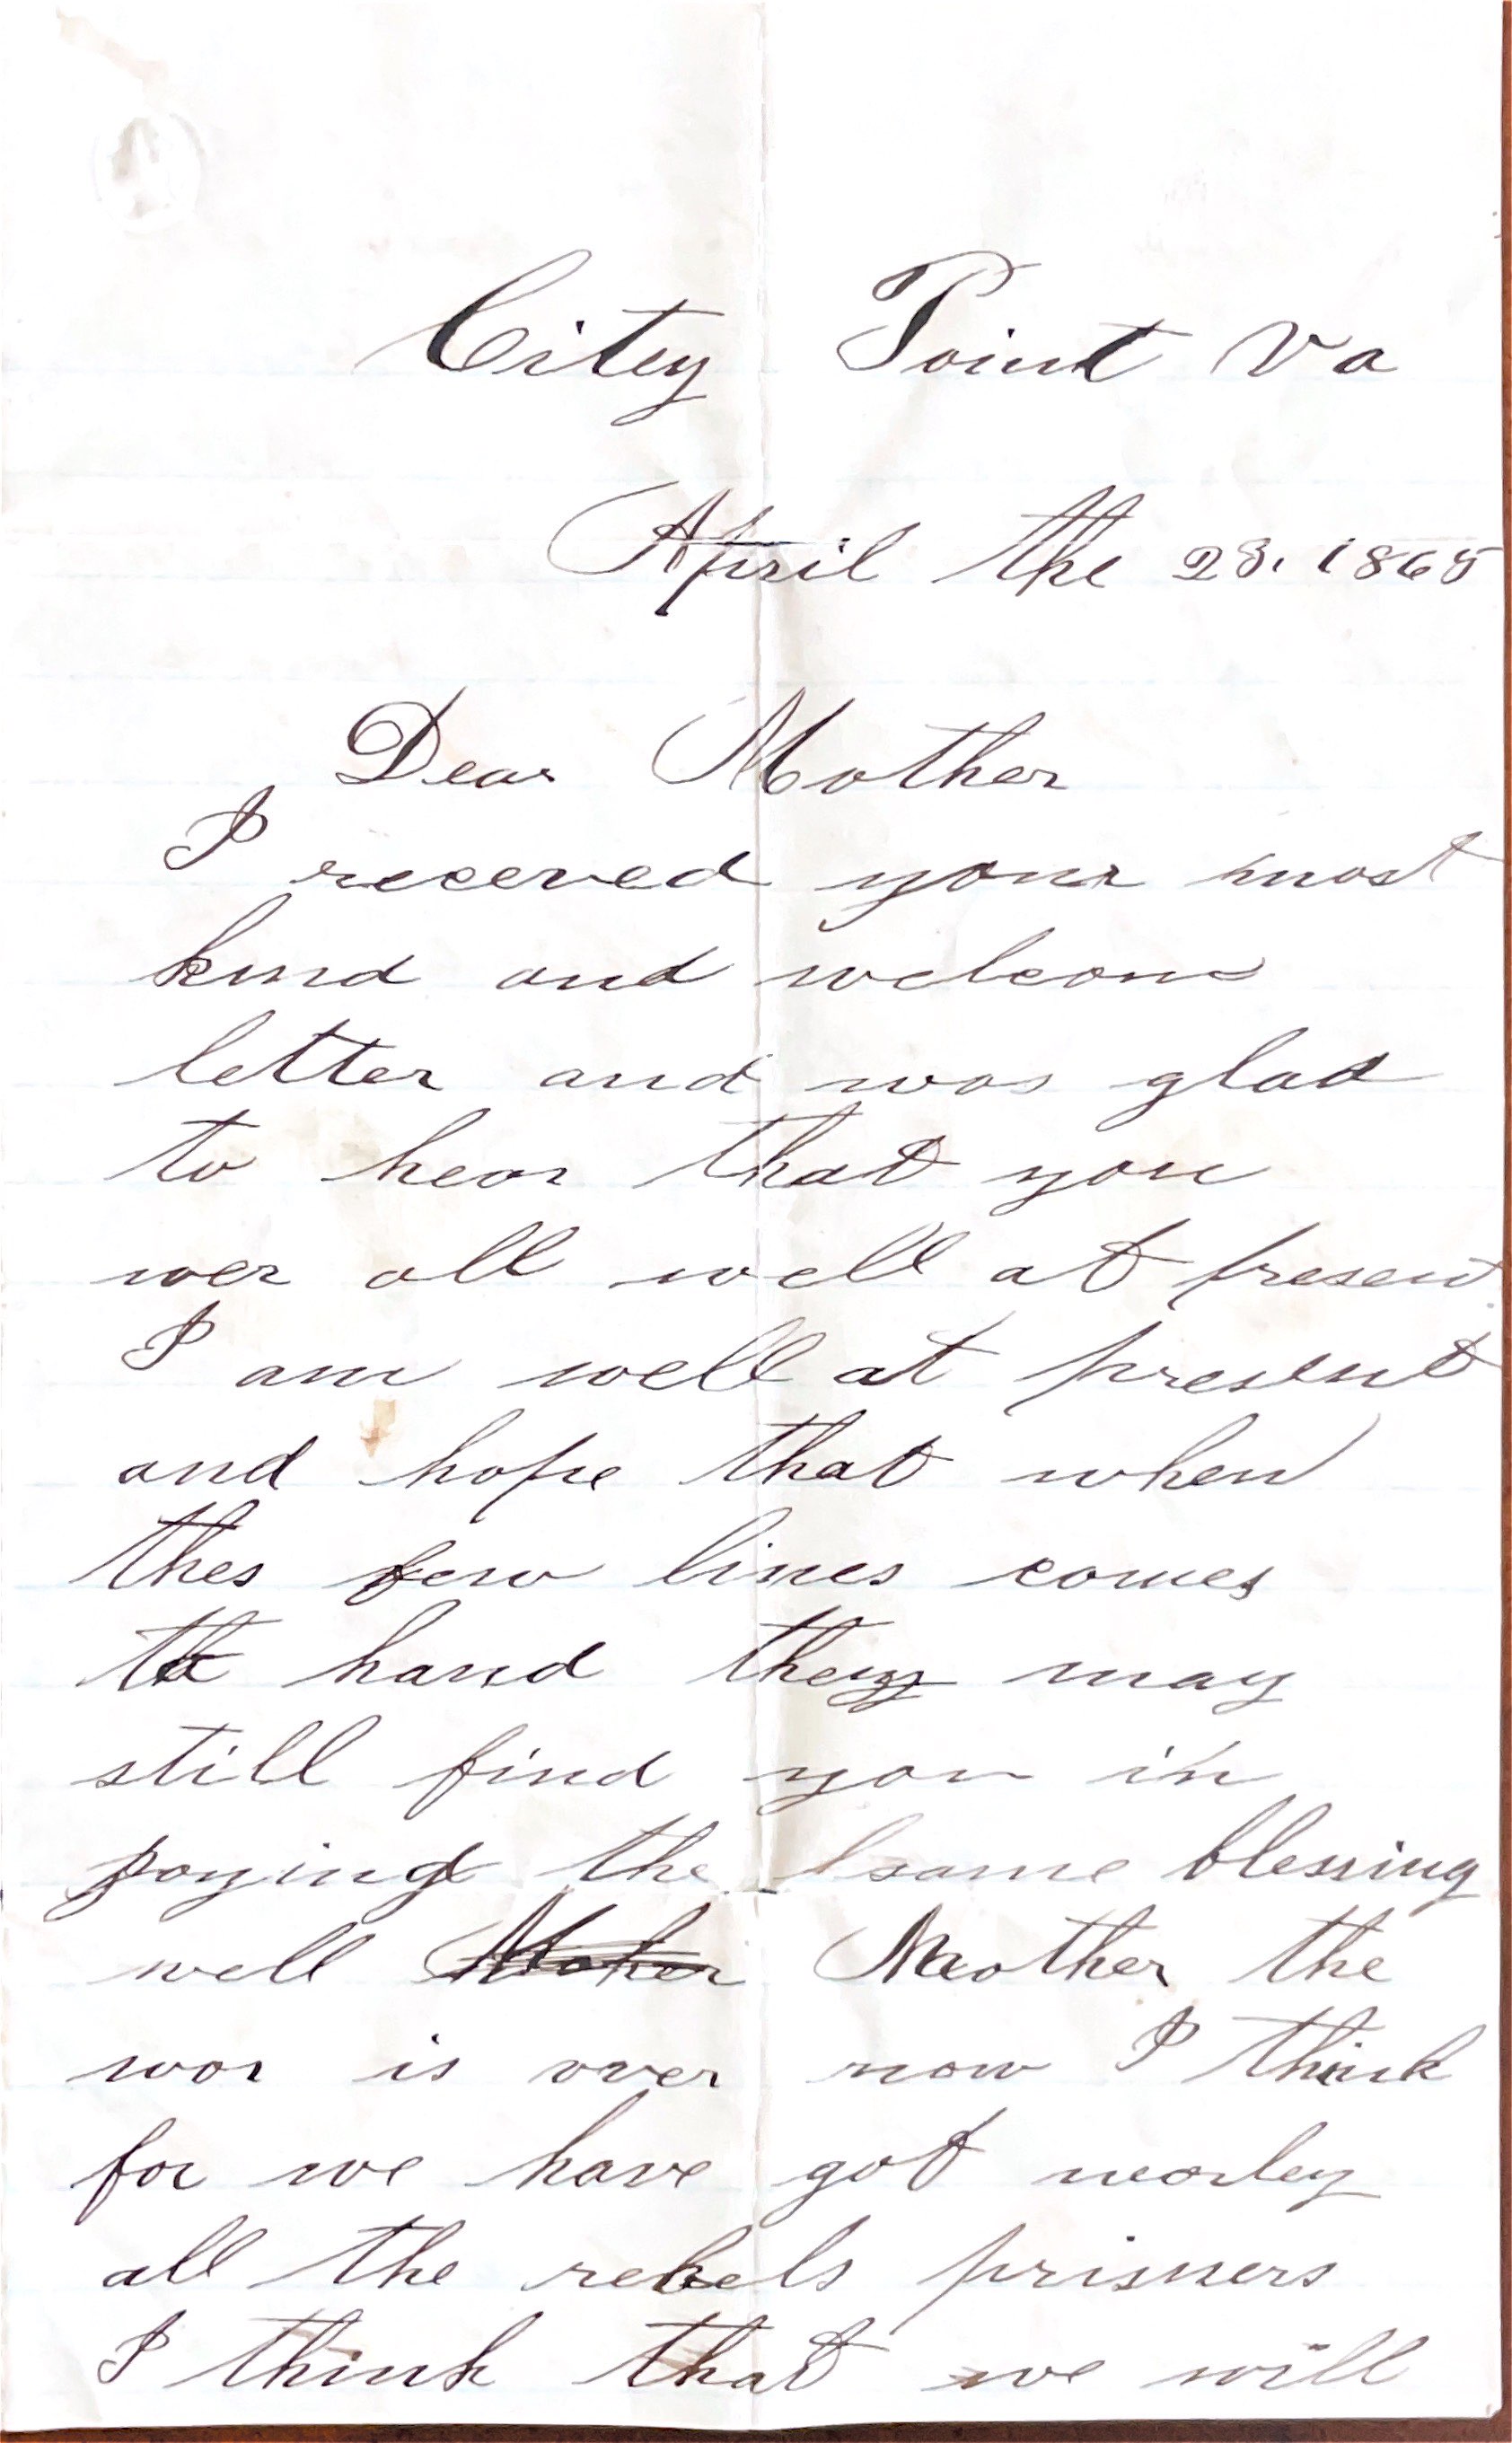 Citey Point Va
April the 28. 1865
Dear Mother
I receeved your most
kind and welcome
letter and was glad
to hear that you
wer all well at present
I am well at present
and hope that when
thes few lines comes
to hand they may
still find you in
joying the same blessing
well Mother the
war is over now I think
for we have got nearley
all the rebels prisners
I think that we will